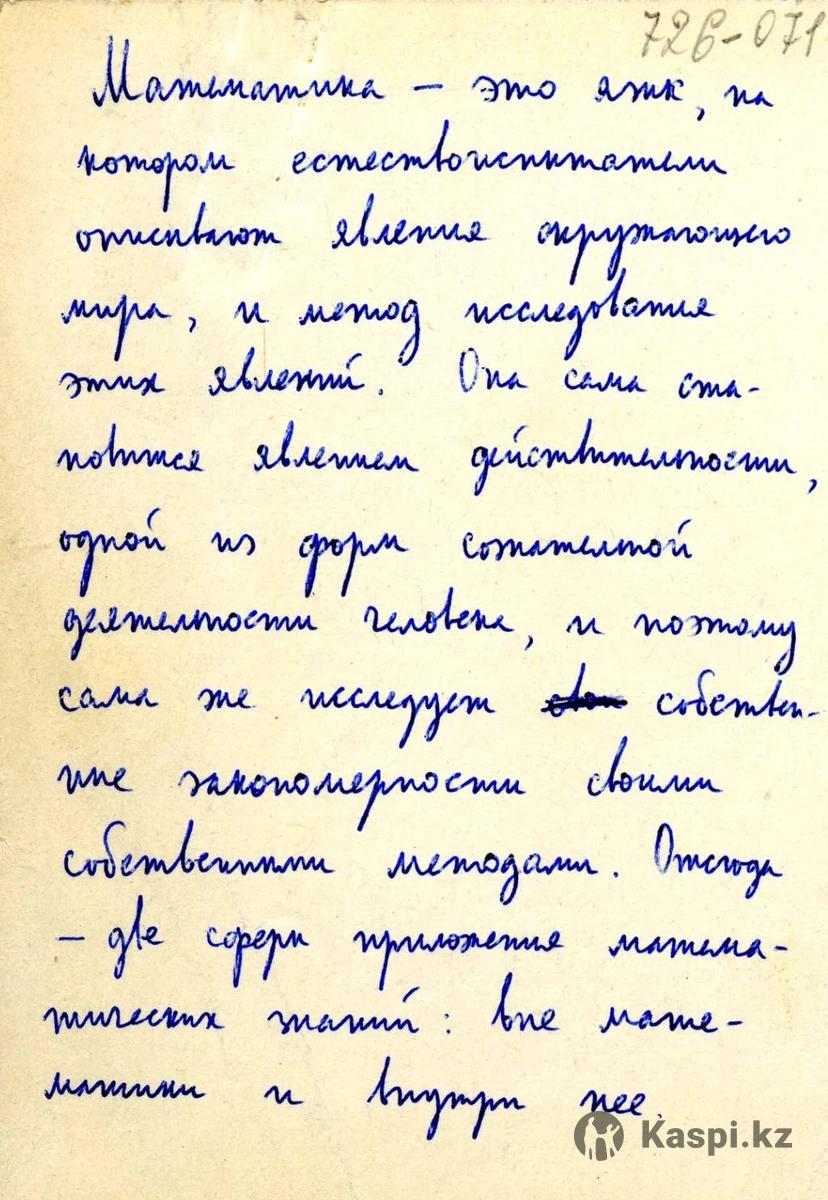 726-071
Математика — это язык, на
котором естествоиспытатели
описывают явления окружающего
мира, и метод исследования
этих явлений. Она сама ста-
новится явлением действительности,
одной из форм сознательной
деятельности человека, и поэтому
сама же исследует собствен-
ные закономерности своими
собственными методами. Отсюда
— две сферы приложения матема-
тических знаний: вне мате-
матики и внутри нее.
Kaspi.kz